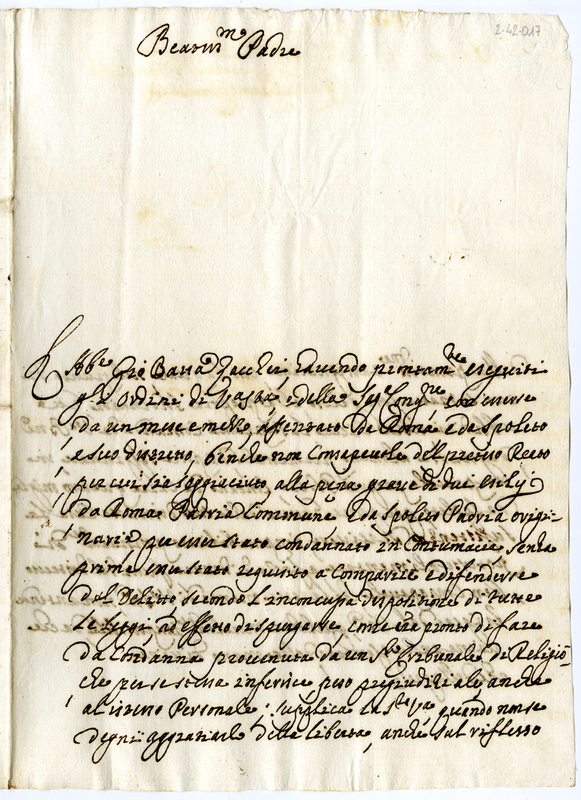 2-42-017
Beatiss.mo Padre
L'Abb.e Gio Batta Zacchei havendo prontam.te eseguiti
gl'Ordini di V. Stà, e della Sg.e Cong.ne con essersi
da un mese e mezzo assentato da Roma e da Spoleto
e suo distretto, benche non Consapevole del preteso Reato
per cui sia soggiaciuto alla pena grave di due esilij
da Roma Padria Commune e da Spoleto Padria origi-
naria per esser stato condannato in Contumacia senza
prima esser stato requisito a Comparire e difendersi
dal Delitto secondo l'inconcussa dispositione di tutte
le leggi, ad effetto di spurgarsi, come era pronto di fare
da Condanna provenuta da un S.to Tribunale di Religio-
che per se stessa inferisce peso pregiuditiale anche
al Personale: supplica la S.tà V.a quando non se
degni aggratiarlo della libertà, anche sul riflesso